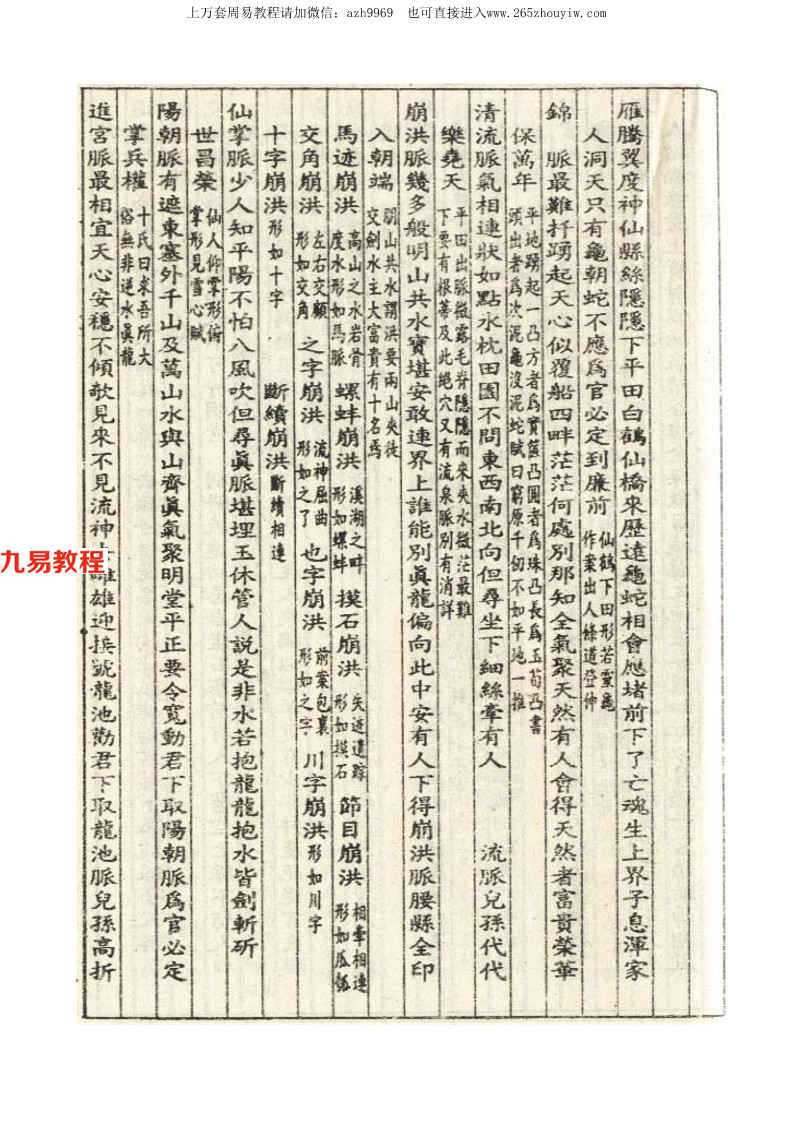 上万套周易教程请加微信：azh9969　也可直接进入www.265zhouyiw.com
雁騰翼度神仙縣絲隱隱下平田白鶴仙橋來歷遠龜蛇相會應堵前下了亡魂生上界子息渾家
人洞天只有龜朝蛇不應爲官必定到廉前 仙鶴下田形若靈龜作案出人條道登仲
錦 脈最難扦踴起天心似覆船四畔茫茫何處別那知全氣聚天然有人會得天然者富貴榮華
保萬年 平地踴起一凸方者爲實凸圓者爲珠凸長爲玉荀凸書頭出者爲次泥龜沒泥蛇賦曰窮原千仞不如平地一推
清流脈氣相連狀如點水枕田園不問東西南北向但尋坐下細絲牽有人 流脈兒孫代代
樂堯天 平田出脈微露毛脊隱隱而來夾水微茫最難下要有根蒂及此絕穴又有流泉脈別有消詳
崩洪脈幾多般明山共水寶堪安敢連界上誰能別眞龍偏向此中安有人下得崩洪脈腰縣全印
入朝端 朋山共水謂洪要兩山夾從交劍水主大富貴有十名焉
馬迹崩洪 高山之水岩骨度水形如馬脈 螺蚌崩洪 溪湖之畔形如螺蚌 摸石崩洪 失迹遺踪形如摸石 節目崩洪 相牽相連形如瓜瓠
交角崩洪 左右交顧形如交角 之字崩洪 流神屈曲形如之了 也字崩洪 前案包裹形如之字 川字崩洪 形如川字
十字崩洪 形如十字 斷續崩洪 斷續相連
仙掌脈少人知平陽不怕八風吹但尋眞脈堪埋玉休管人說是非水若抱龍龍抱水皆劍斬斫
世昌榮 仙人仰掌形俯掌形見雪心賦
陽朝脈有遮東塞外千山及萬山水與山齊眞氣聚明堂平正要令寬動君下取陽朝脈爲官必定
掌兵權 十氏曰求吾所大俗無非逆水眞龍
進宮脈最相宜天心安穩不傾欹見來不見流神 雄迎接號龍池勸君下取龍池脈兒孫高折
九易教程